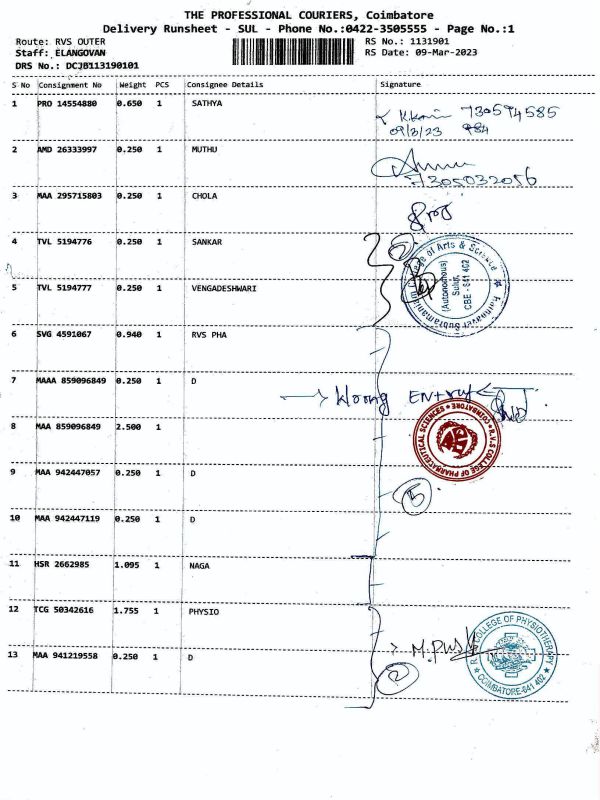 THE PROFESSIONAL COURIERS, Coimbatore
Delivery Runsheet - SUL - Phone No.:0422-3505555 - Page No.:1
Route: RVS OUTER RS No.: 1131901
Staff: ELANGOVAN RS Date: 09-Mar-2023
DRS No.: DCJB113190101
S No Consignment No Weight PCS Consignee Details Signature
1 PRO 14554880 0.650 1 SATHYA
730594585
09/3/23 984
2 AMD 26333997 0.250 1 MUTHU
7305032056
3 MAA 295715803 0.250 1 CHOLA
4 TVL 5194776 0.250 1 SANKAR
2
College of Arts & Science
(Autonomous)
Sulur,
CBE - 641 402
5 TVL 5194777 0.250 1 VENGADESHWARI
6 SVG 4591067 0.940 1 RVS PHA
7 MAAA 859096849 0.250 1 D
Wrong Entry
8 MAA 859096849 2.500 1
R.V.S COLLEGE OF PHARMACEUTICAL SCIENCES COIMBATORE
9 MAA 942447057 0.250 1 D
5
10 MAA 942447119 0.250 1 D
11 HSR 2662985 1.095 1 NAGA
12 TCG 50342616 1.755 1 PHYSIO
COLLEGE OF PHYSIOTHERAPY
COIMBATORE-641 402
13 MAA 941219558 0.250 1 D
2